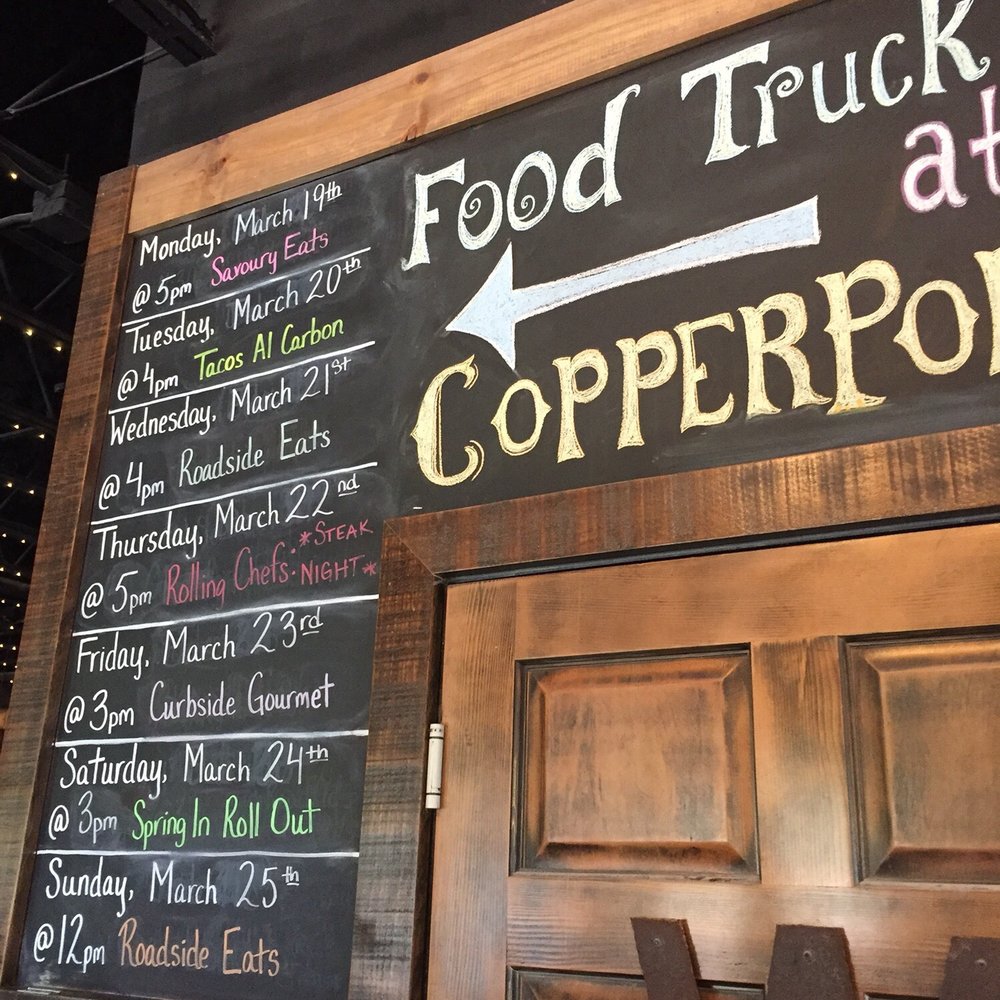 Monday, March 19th
@ 5pm Savoury Eats
Tuesday, March 20th
@ 4pm Tacos Al Carbon
Wednesday, March 21st
@ 4pm Roadside Eats
Thursday, March 22nd
@ 5pm Rolling Chefs: *STEAK
NIGHT*
Friday, March 23rd
@ 3pm Curbside Gourmet
Saturday, March 24th
@ 3pm Spring In Roll Out
Sunday, March 25th
@ 12pm Roadside Eats
Food Truck
at